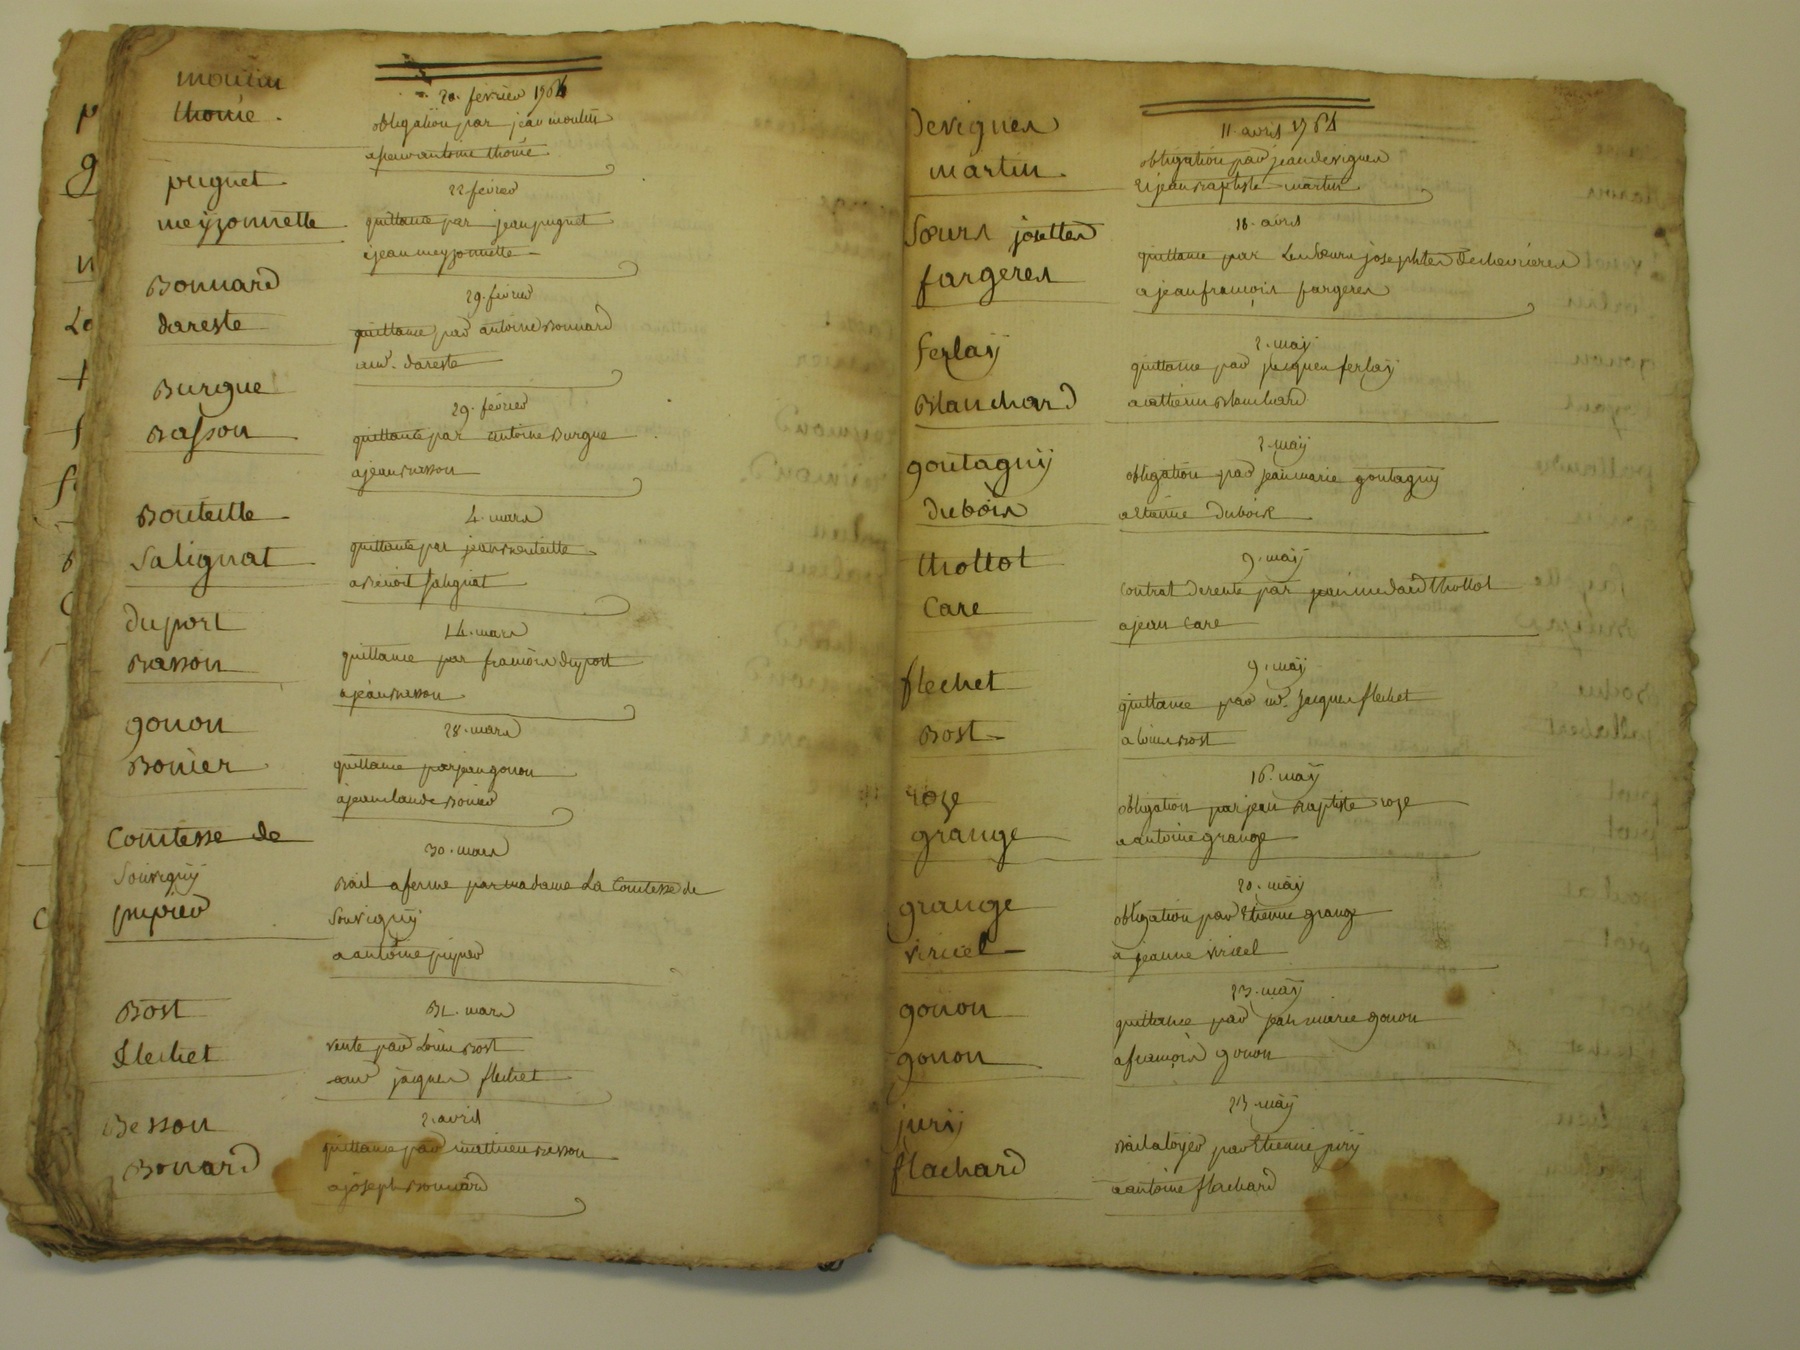 moulin
thoïne.
20. fevrier 1764
obligation par jean moulin
a pierre antoine thoïne
puguet
meÿzonnette
22 fevrier
quittance par jean puguet
a jean meyzonnette
Bonnard
dareste
29. fevrier
quittance par antoine Bonnard
a mr. dareste
Burgue
Basson
29. fevrier
quittance par antoine Burgue
a jean Basson
Bouteille
Salignat
4. mars
quittance par jean Bouteille
a Benoit Salignat
duport
Basson
14. mars
quittance par francois duport
a jean Basson
gonon
Bonier
28. mars
quittance par jean gonon
a jean claude Bonier
Comtesse de
Souvigny
pupier
30. mars
Bail a ferme par madame La Comtesse de
Souvigny
a antoine pupier
Bost
flechet
31. mars
vente par Louis Bost
a mr jacques flechet
Besson
Bonard
2. avril
quittance par mathieu Besson
a joseph Bonnard
devignes
martin.
11. avril 1764
obligation par jean devignes
a jean Baptiste martin
Sœurs josettes
fargeres
18. avril
quittance par Les Sœurs josephtes de chevrieres
a jean francois fargeres
ferlaÿ
Blanchard
2. maÿ
quittance par jacques ferlaÿ
a catherin Blanchard
goutagnÿ
dubois
2. maÿ
obligation par jean marie goutagnÿ
a Etienne dubois
thollot
Care
9. maÿ
Contrat de rente par jean medard thollot
a jean Care
flechet
Bost
9. maÿ
quittance par mr. jacques flechet
a Louis Bost
roze
grange
16. maÿ
obligation par jean Baptiste roze
a antoine grange
grange
viricel
20. maÿ
obligation par Etienne grange
a jeanne viricel
gonon
gonon
23. maÿ
quittance par jean marie gonon
a francois gonon
jurÿ
flachard
23. maÿ
Bail a loyer par Etienne jurÿ
a antoine flachard